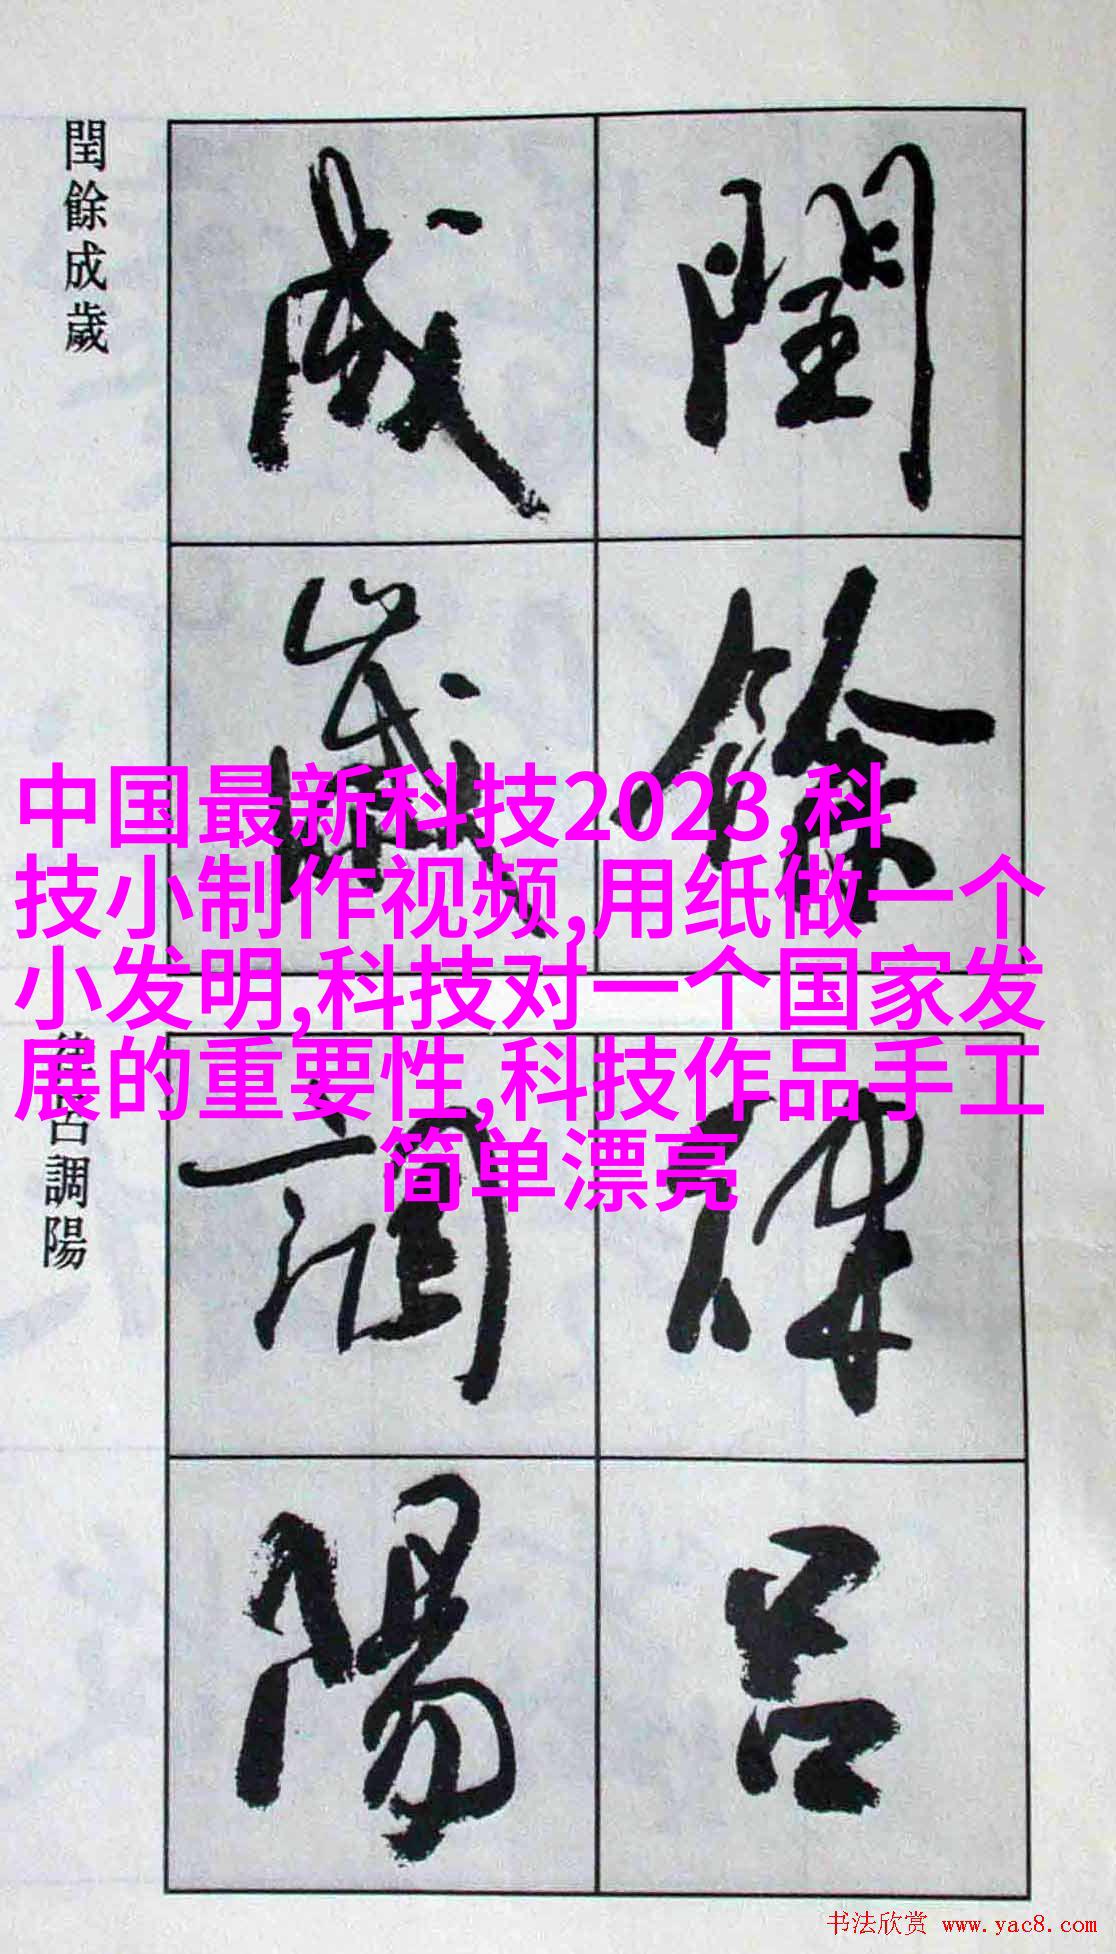 閏餘
成歲
閏餘成歲
中国最新科技2023,科
技小制作视频,用纸做一个
小发明,科技对一个国家发
展的重要性,科技作品手工
简单漂亮
律呂
調陽
調陽
书法欣赏 www.yac8.com